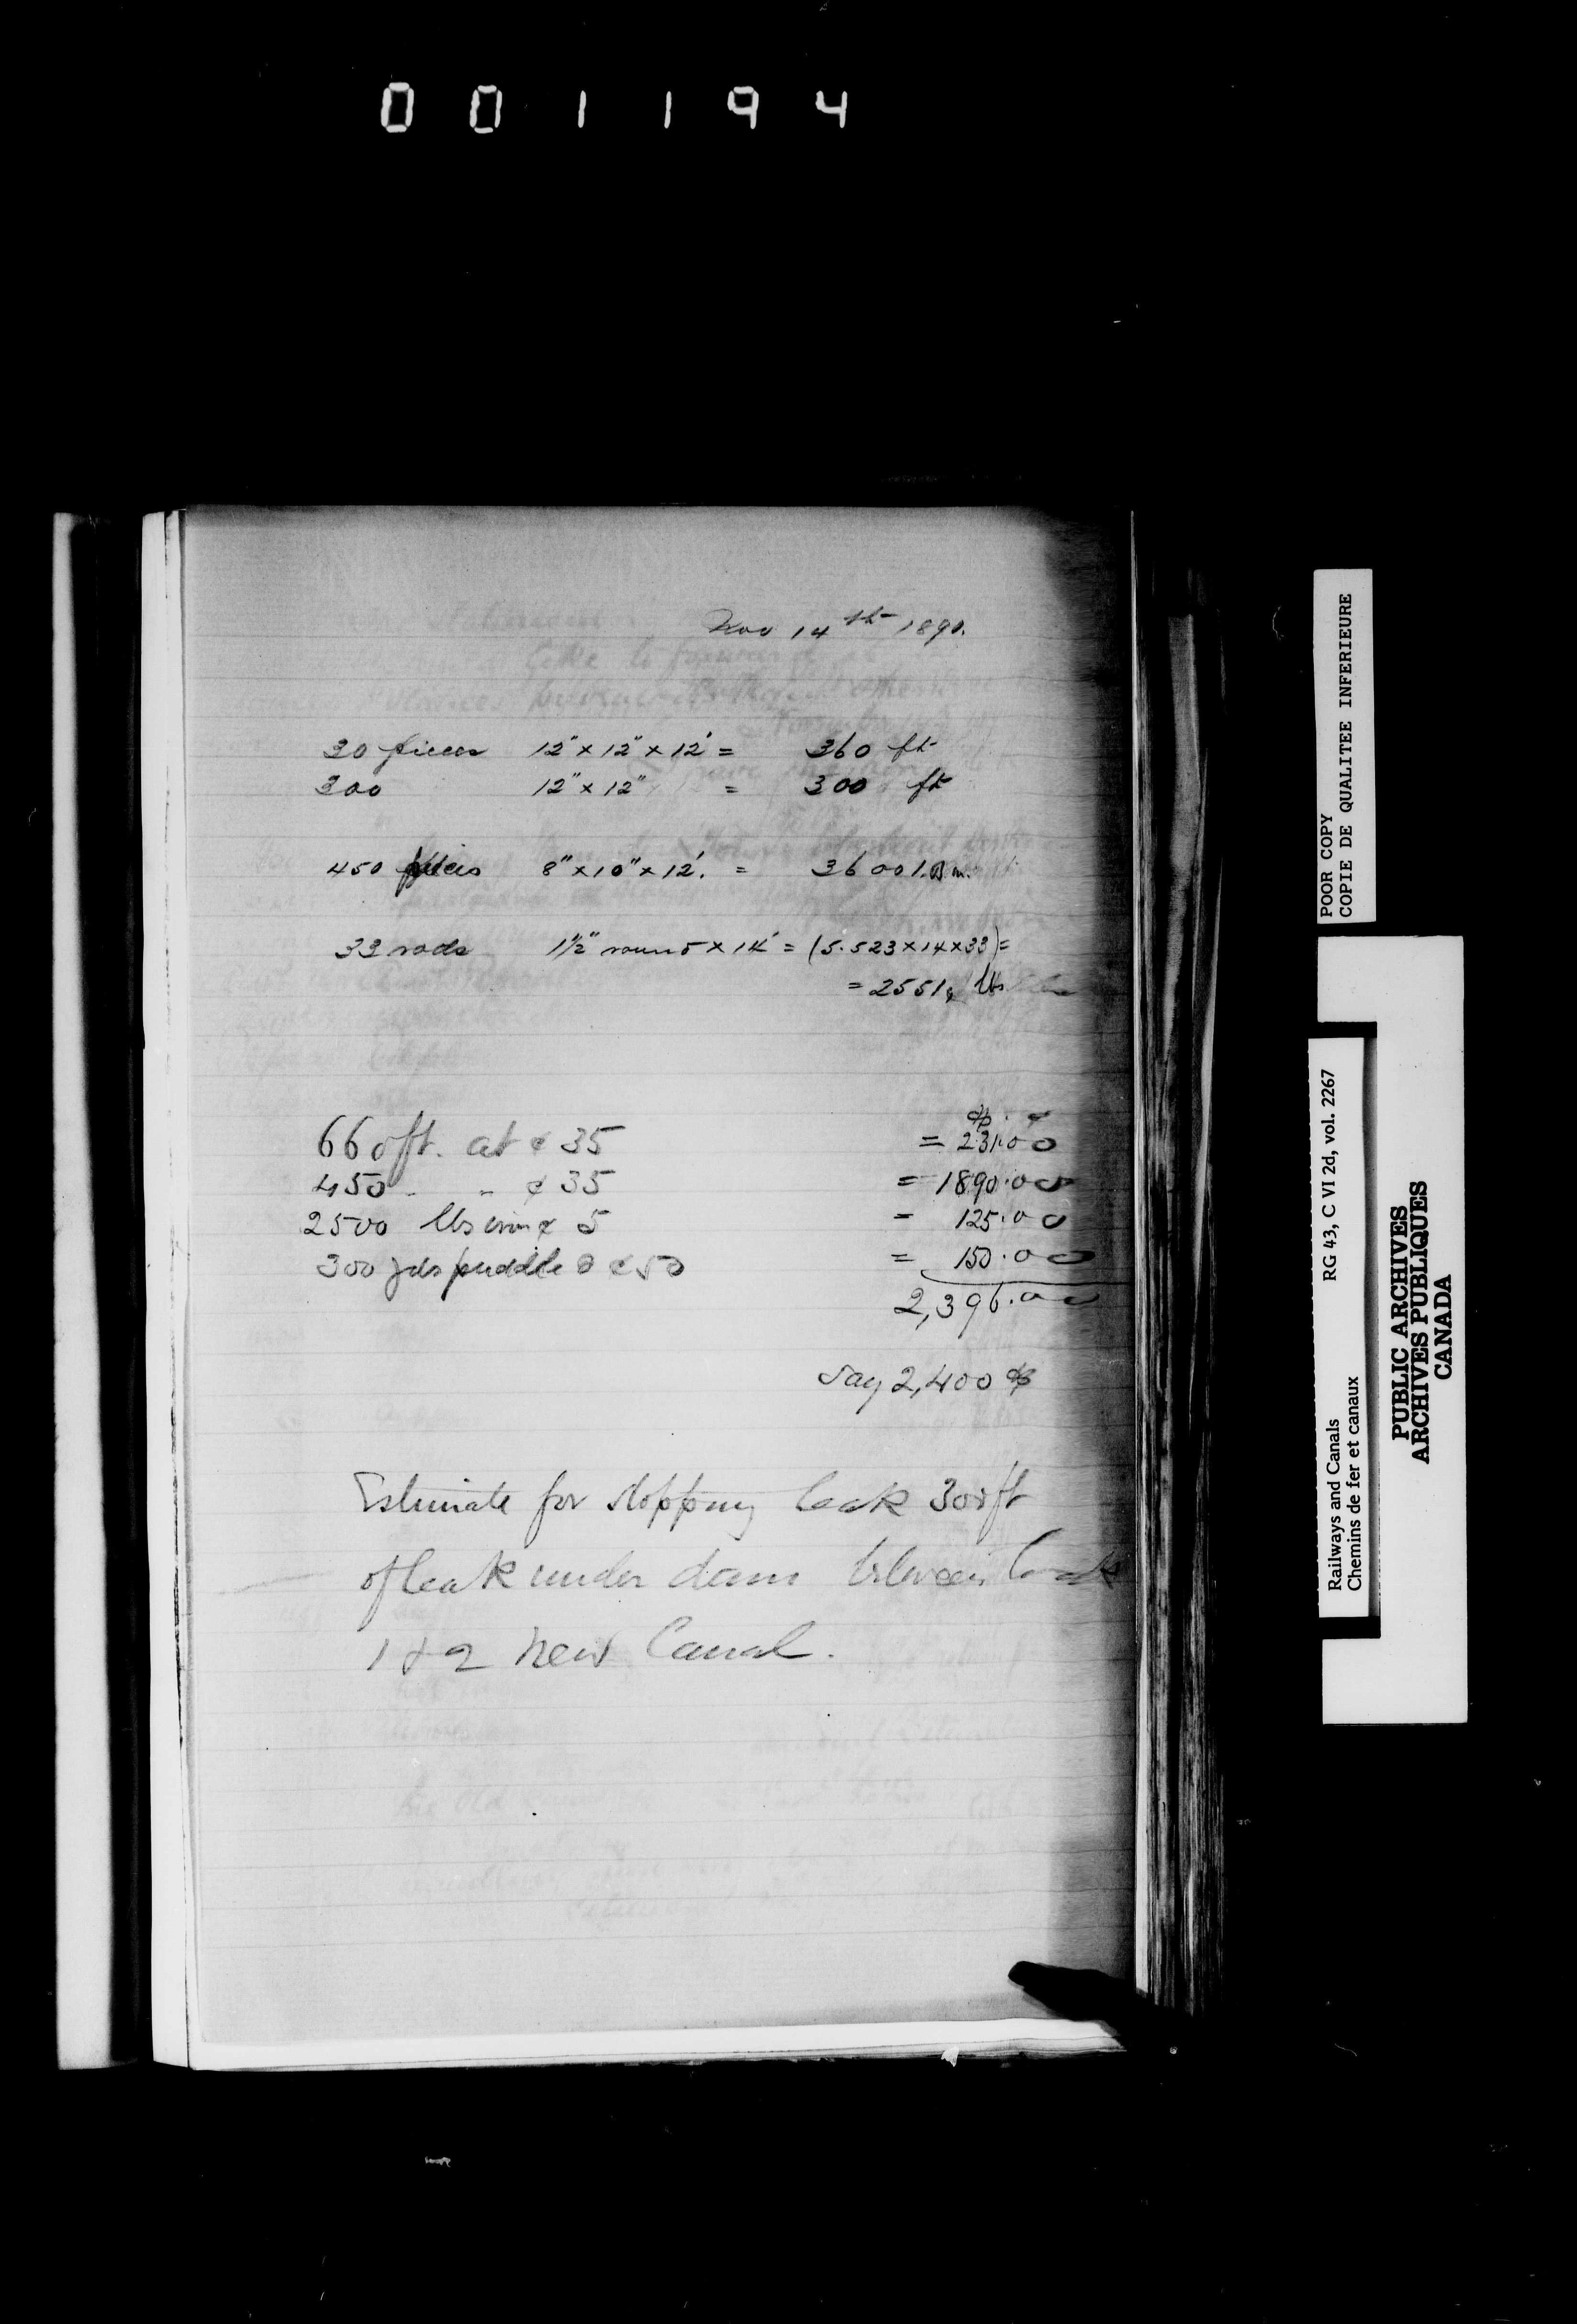 001194
Nov 14th 1890.
30 pieces 12" x 12" x 12' = 360 ft
300 12" x 12" = 300 ft
450 pieces 8" x 10" x 12'. = 3600 f. B m.
33 rods 1½" round x 14' = (5.523 x 14 x 33) =
= 2551, lbs
$ . ¢
660 ft. at ¢ 35 = 231.00
450 " ¢ 35 = 1890.00
2500 lbs iron ¢ 5 = 125.00
300 yds puddle @ ¢ 50 = 150.00
2,396.00
Say 2,400 $
Estimate for stopping leak 300 ft
of leak under dam between Locks
1 & 2 New Canal.
POOR COPY
COPIE DE QUALITEE INFERIEURE
Railways and Canals RG 43, C VI 2d, vol. 2267
Chemins de fer et canaux
PUBLIC ARCHIVES
ARCHIVES PUBLIQUES
CANADA